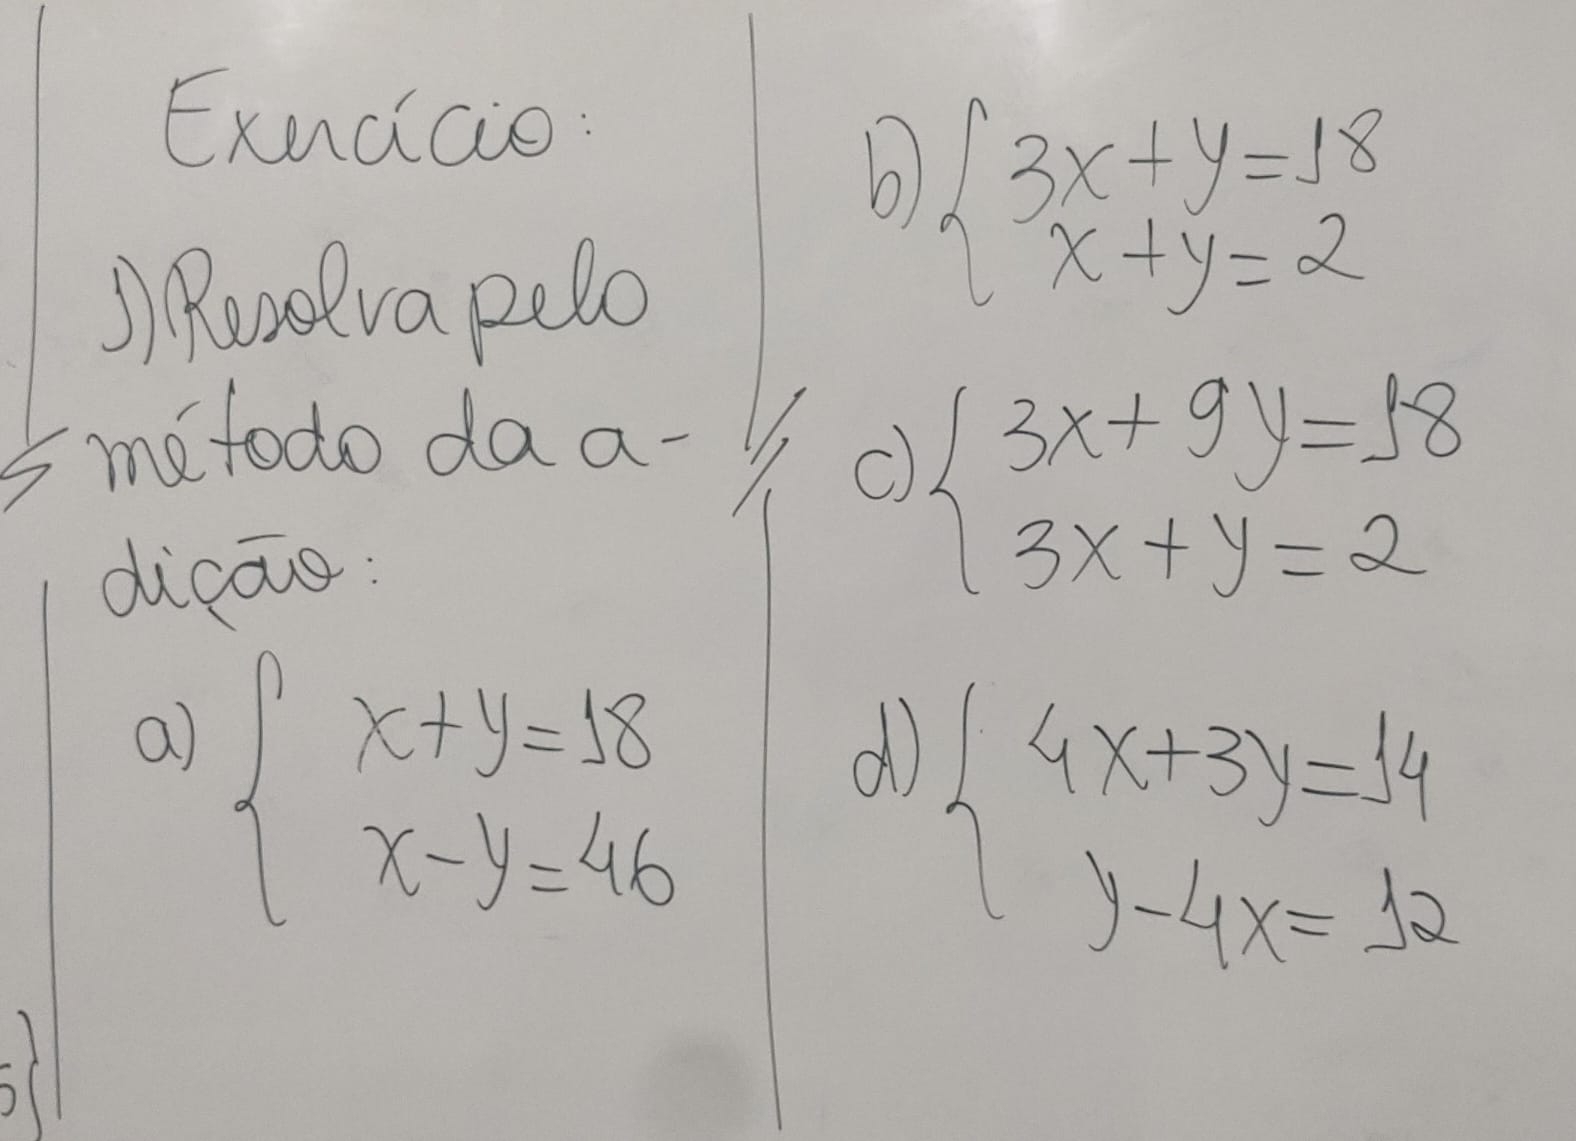 Exercício:
1) Resolva pelo
método da a-
dição:
a) { x+y=18
x-y=46
b) { 3x+y=18
x+y=2
c) { 3x+9y=18
3x+y=2
d) { 4x+3y=14
y-4x=12
5}